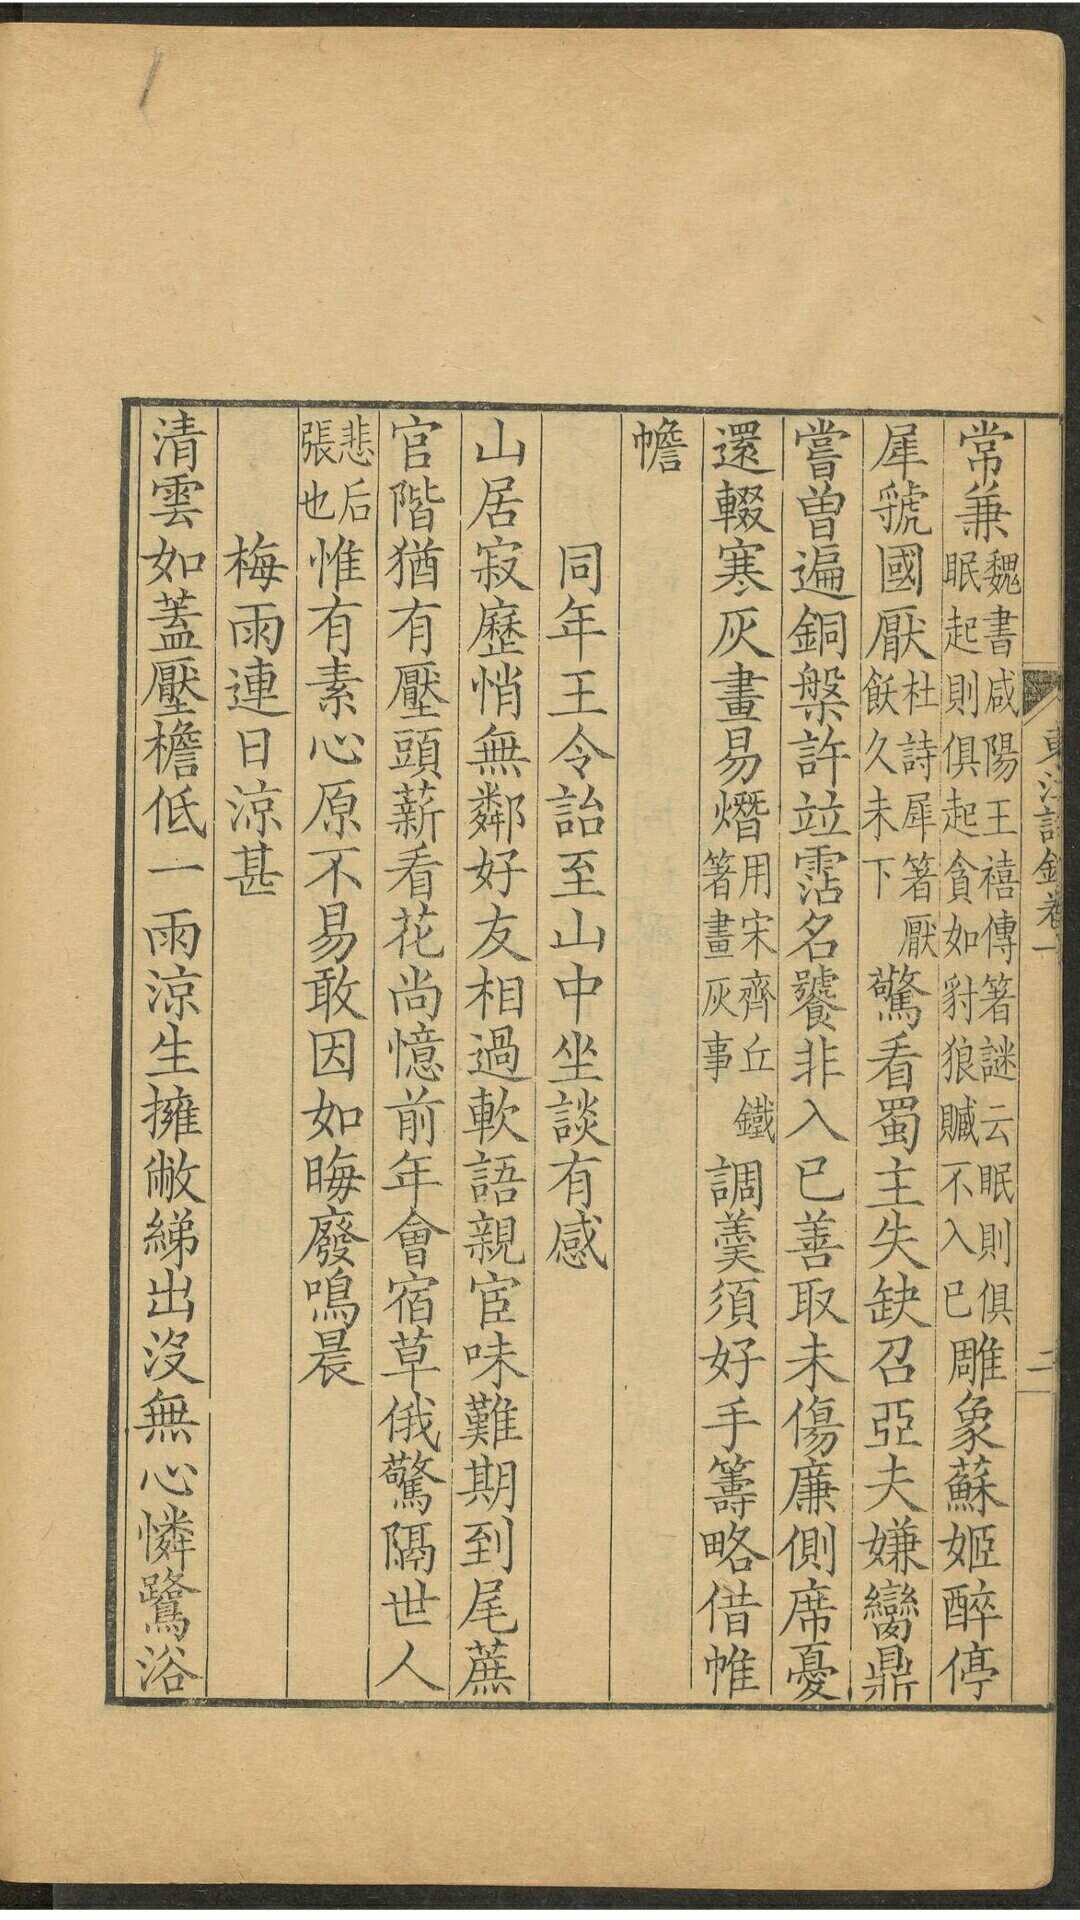 東江詩鈔卷一
二
常兼魏書咸陽王禧傳箸謎云眠則俱眠起則俱起貪如豺狼贓不入己雕象蘇姬醉停
犀虢國厭杜詩犀箸厭飫久未下驚看蜀主失缺召亞夫嫌臠鼎
嘗曾遍銅槃許竝霑名饕非入已善取未傷廉側席憂
還輟寒灰畫易熸用宋齊丘鐵箸畫灰事調羹須好手籌略借帷
幨
同年王令詒至山中坐談有感
山居寂歷悄無鄰好友相過軟語親宦味難期到尾蔗
官階猶有壓頭薪看花尚憶前年會宿草俄驚隔世人
悲后張也惟有素心原不易敢因如晦廢鳴晨
梅雨連日涼甚
清雲如蓋壓檐低一雨涼生擁敝綈出沒無心憐鷺浴